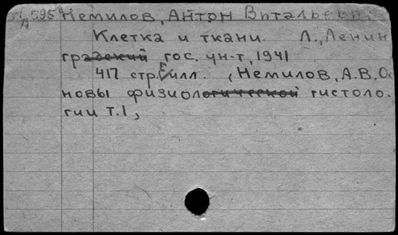 595 Немилов, Антон Витальевич
Клетка и ткани. Л., Ленин
градский гос. ун-т, 1941
417 стр. с илл. (Немилов, А.В. Ос
новы физиологической гистоло.
гии т.1,